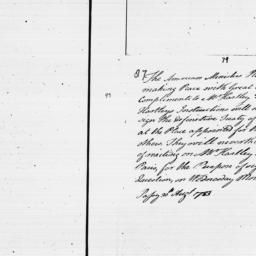 79
87 The American Ministers
making Peace with Great
Compliments to Mr Hartley
Hartleys Instructions will
sign the Definitive Treaty of
at the Place appointed for
others. They will
of meeting Mr Hartley
Paris, for the Purpose of
Question, on Wednesday Mor
Passy Augt 1783